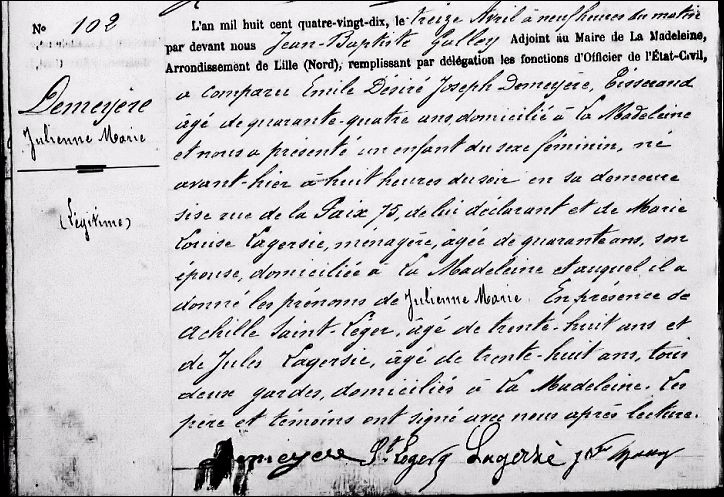 No 102
L'an mil huit cent quatre-vingt-dix, le treize Avril à neuf heures du matin
par devant nous Jean-Baptiste Galley Adjoint au Maire de La Madeleine,
Arrondissement de Lille (Nord), remplissant par délégation les fonctions d'Officier de l'État-Civil,
Demeyère
Julienne Marie
(Légitime)
a comparu Emile Désiré Joseph Demeyère, Tisserand
âgé de quarante-quatre ans, domicilié à La Madeleine
et nous a présenté un enfant du sexe féminin, né
avant-hier à huit heures du soir en sa demeure
sise rue de la Paix 75, de lui déclarant et de Marie
Louise Lagersie, ménagère, âgée de quarante ans, son
épouse, domiciliée à La Madeleine et auquel il a
donné les prénoms de Julienne Marie. En présence de
Achille Saint-Léger, âgé de trente-huit ans et
de Jules Lagersie, âgé de trente-huit ans, tous
deux gardes, domiciliés à La Madeleine. Les
père et témoins ont signé avec nous après lecture.
Demeyère St Leger Lagersie